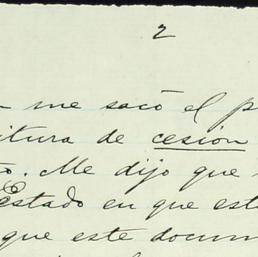 2
me sacó el
itura de cesion
o. Me dijo que
Estado en que est
que este docum